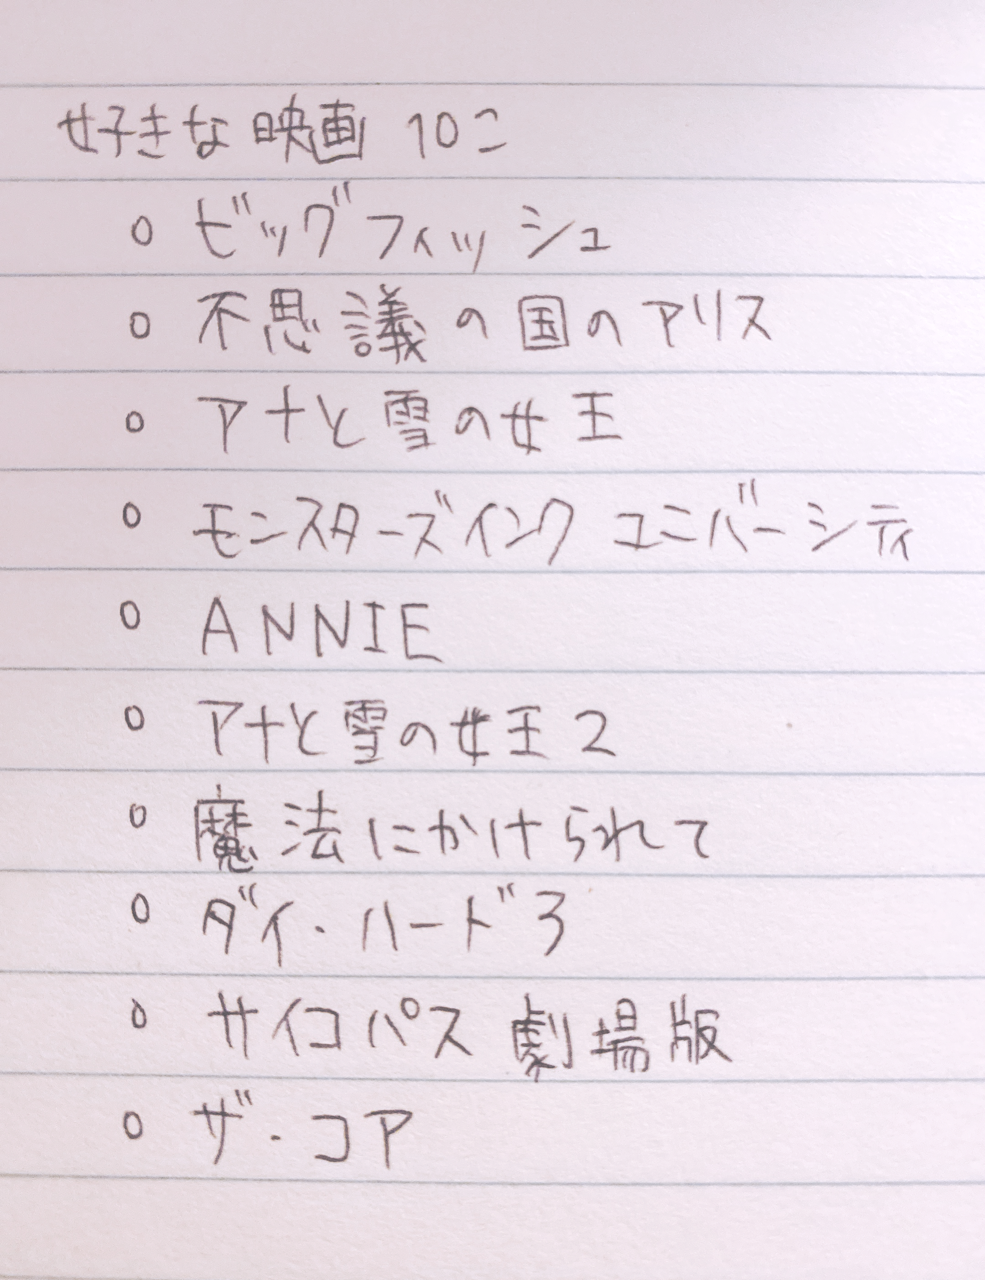 好きな映画 10こ
○ ビッグフィッシュ
○ 不思議の国のアリス
○ アナと雪の女王
○ モンスターズインク ユニバーシティ
○ ANNIE
○ アナと雪の女王2
○ 魔法にかけられて
○ ダイ・ハード3
○ サイコパス 劇場版
○ ザ・コア